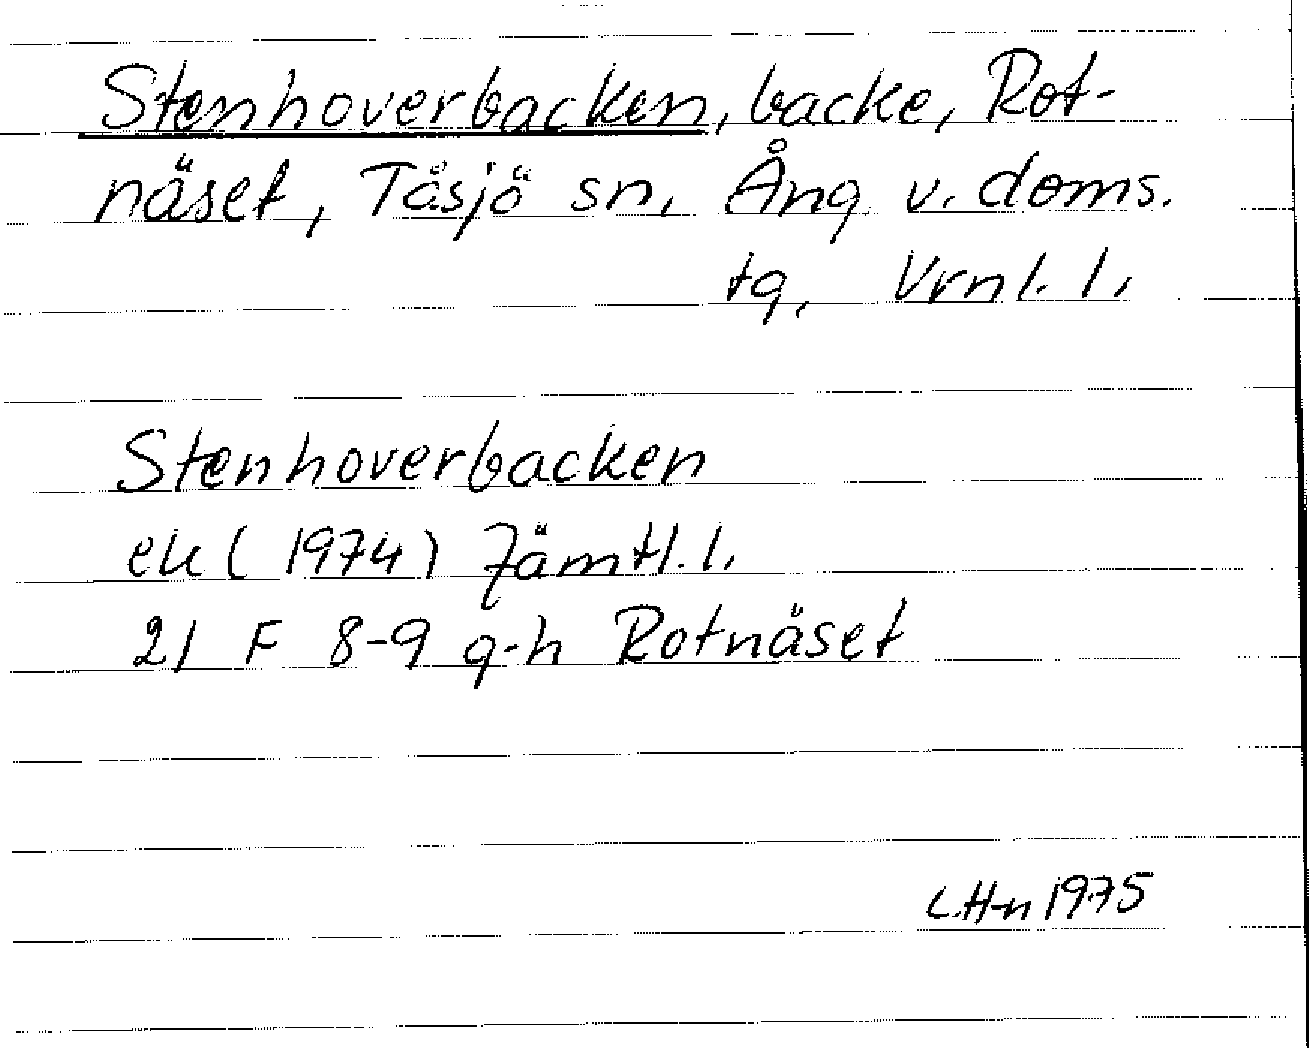 Stenhoverbacken, backe, Rot-
näset, Tåsjö sn, Ång v. doms.
tg, Vrnl. l.
Stenhoverbacken
ek (1974) Jämtl. l.
21 F 8-9 g-h Rotnäset
L.H-n 1975